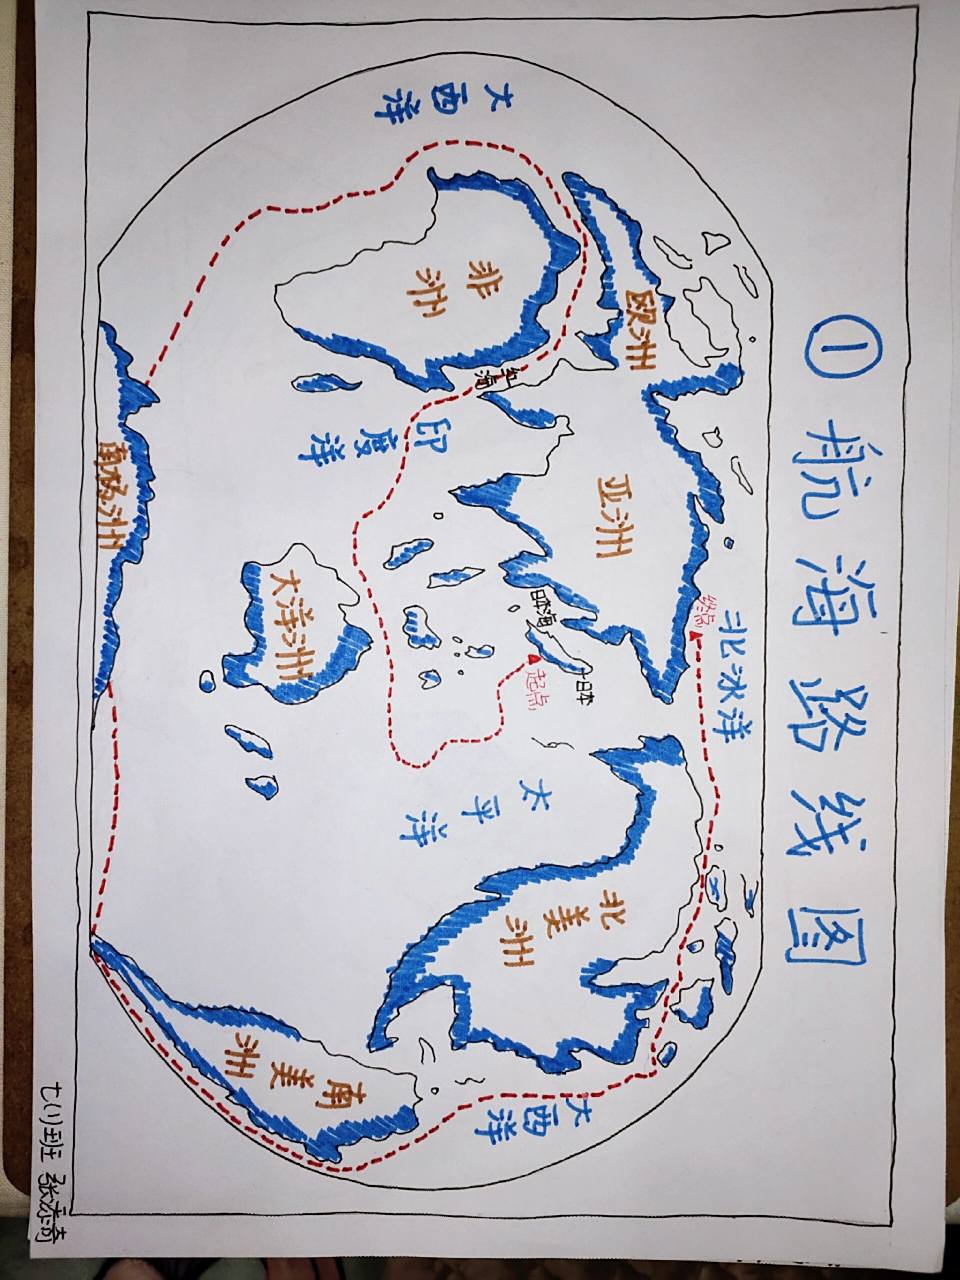 ① 航海路线图
北冰洋
大西洋
欧洲
亚洲
终点
非洲
红海
日本海
日本
起点
北美洲
太平洋
大西洋
印度洋
大洋洲
南美洲
南极洲
七(1)班